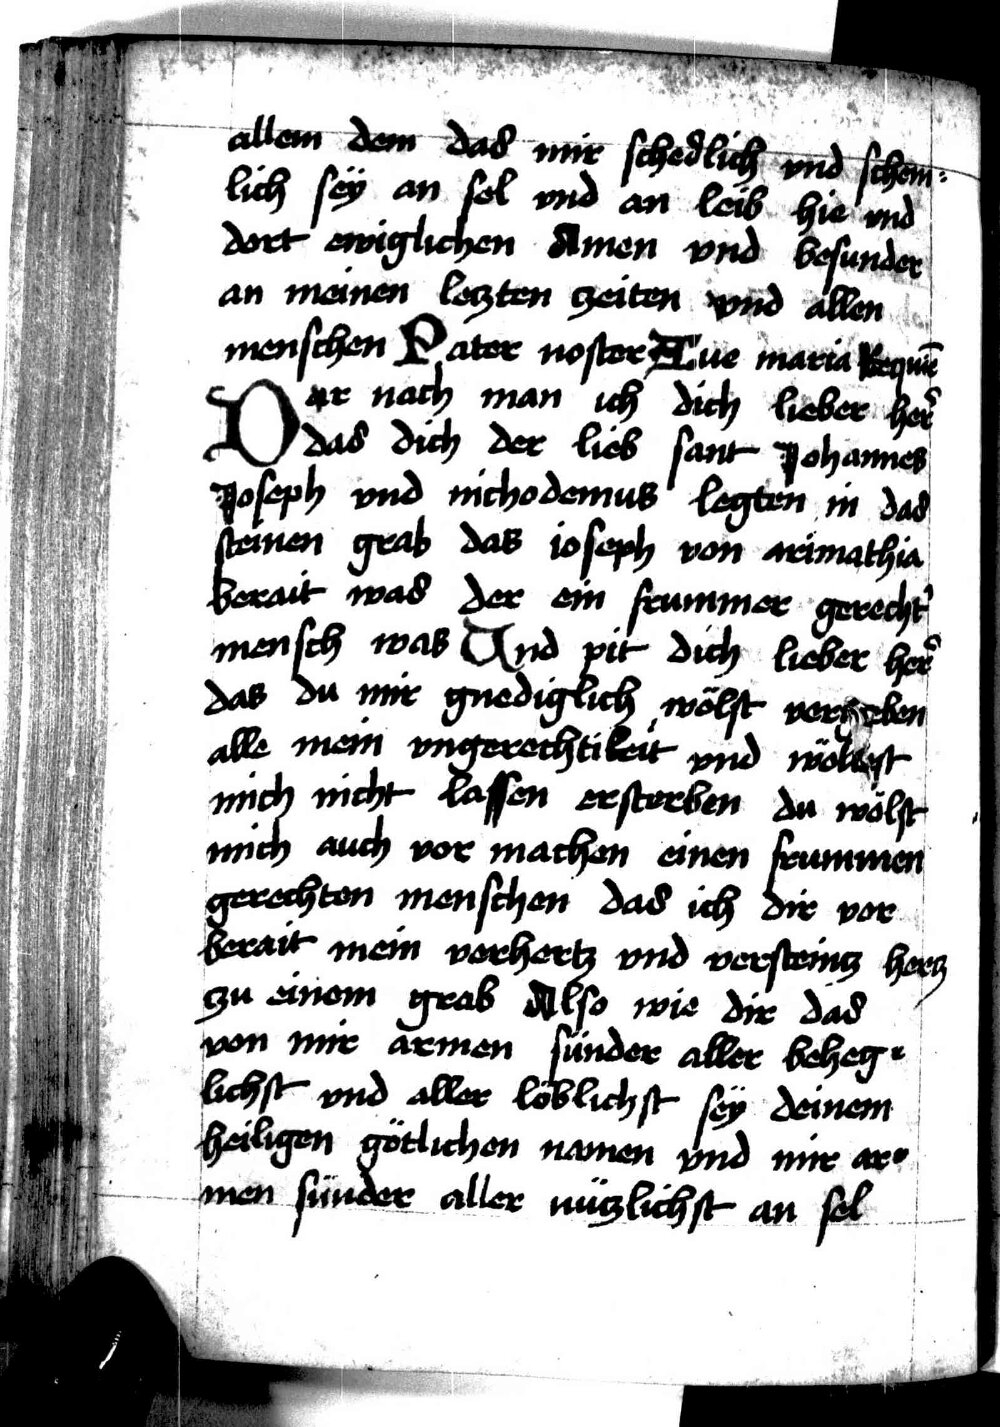 allem dem das mir schedlich vnd schem-
lich sey an sel vnd an leib hie vnd
dort ewiglichen Amen vnd besunder
an meinen letzten tzeiten vnd allen
menschen Pater noster Aue maria Requiē
Dar nach man ich dich lieber her̃
das dich der lieb sant Johannes
Joseph vnd nichodemus legten in das
steinen grab das ioseph von arimathia
berait was der ein frummer gerecht'
mensch was Und pit dich lieber her̃
das du mir gnediglich wölst vergeben
alle mein vngerechtikeit vnd wöllest
mich nicht lassen ersterben du wölst
mich auch vor machen einen frummen
gerechten menschen das ich dir vor
berait mein verhertz vnd versteintz hertz
tzu einem grab Also wie dir das
von mir armen sünder aller beheg-
lichst vnd aller löblichst sey deinem
heiligen götlichen namen vnd mir ar-
men sünder aller nützlichst an sel